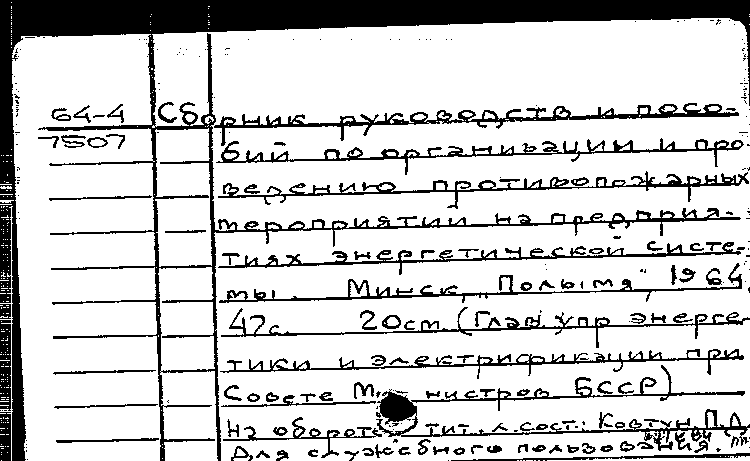 64-4
7507
Сборник руководств и посо-
бий по организации и про
ведению противопожарных
мероприятий на предприя-
тиях энергетической систе-
мы. Минск, "Полымя", 1964.
47с. 20см. (Глав. упр энерге-
тики и электрификации при
Совете Министров БССР)
На обороте тит. л. сост.: Ковтун П.Л.
Для служебного пользования.